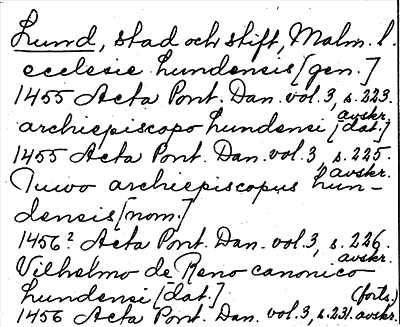 Lund, stad och stift, Malm. l.
ecclesie lundensis [gen.]
1455 Acta Pont. Dan. vol. 3, s. 223.
avskr.
archiepiscopo lundensi [dat.]
1455 Acta Pont. Dan. vol. 3, s. 225.
avskr.
Tuwo archiepiscopus lun-
densis [nom.]
1456? Acta Pont. Dan. vol. 3, s. 226.
avskr.
Vilhelmo de Reno canonico
lundensi [dat.] (forts.)
1456 Acta Pont. Dan. vol. 3, s. 231. avskr.